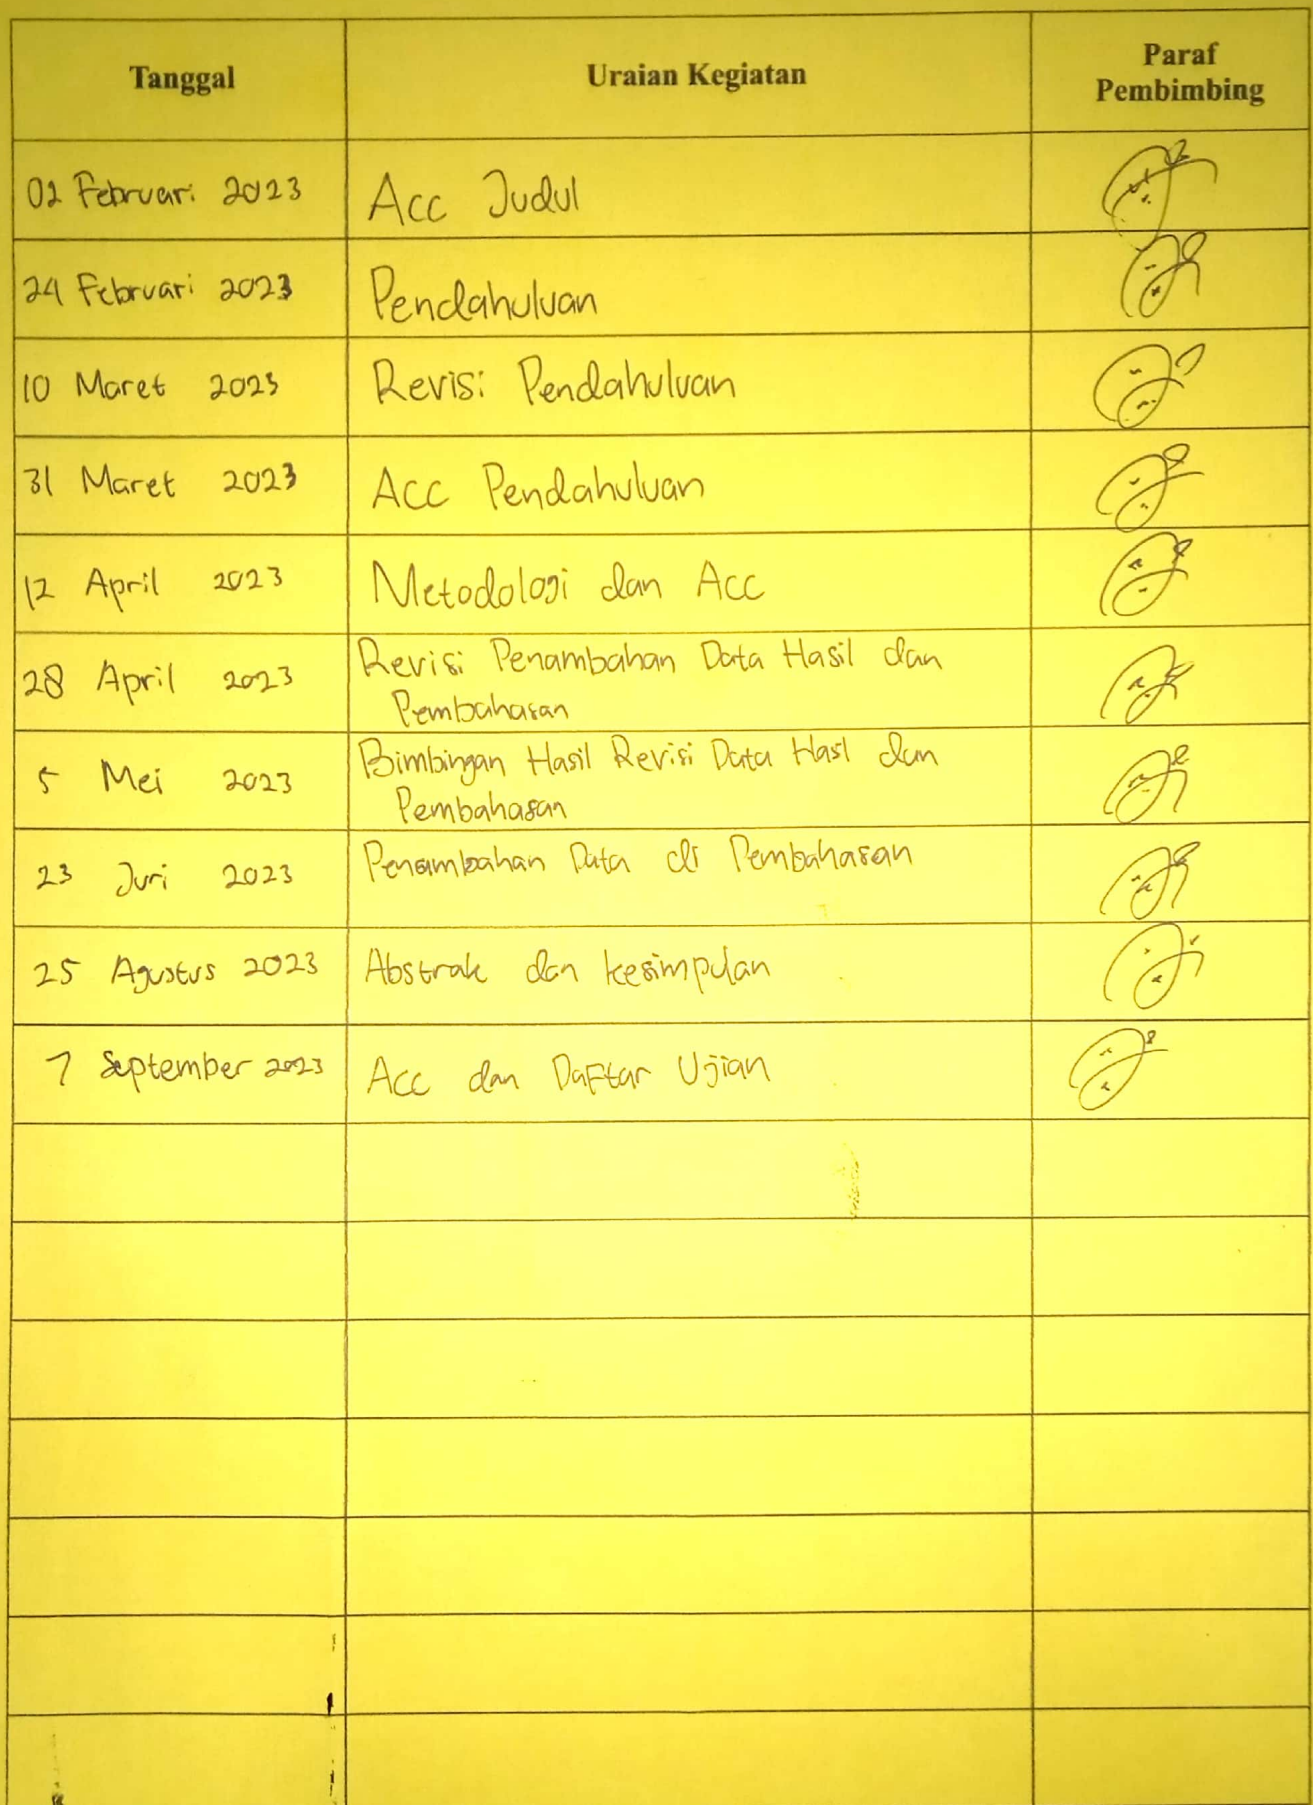 Tanggal Uraian Kegiatan Paraf
Pembimbing
02 Februari 2023 Acc Judul
24 Februari 2023 Pendahuluan
10 Maret 2023 Revisi Pendahuluan
31 Maret 2023 Acc Pendahuluan
12 April 2023 Metodologi dan Acc
28 April 2023 Revisi Penambahan Data Hasil dan
Pembahasan
5 Mei 2023 Bimbingan Hasil Revisi Data Hasl dan
Pembahasan
23 Juni 2023 Penambahan Data di Pembahasan
25 Agustus 2023 Abstrak dan kesimpulan
7 September 2023 Acc dan Daftar Ujian